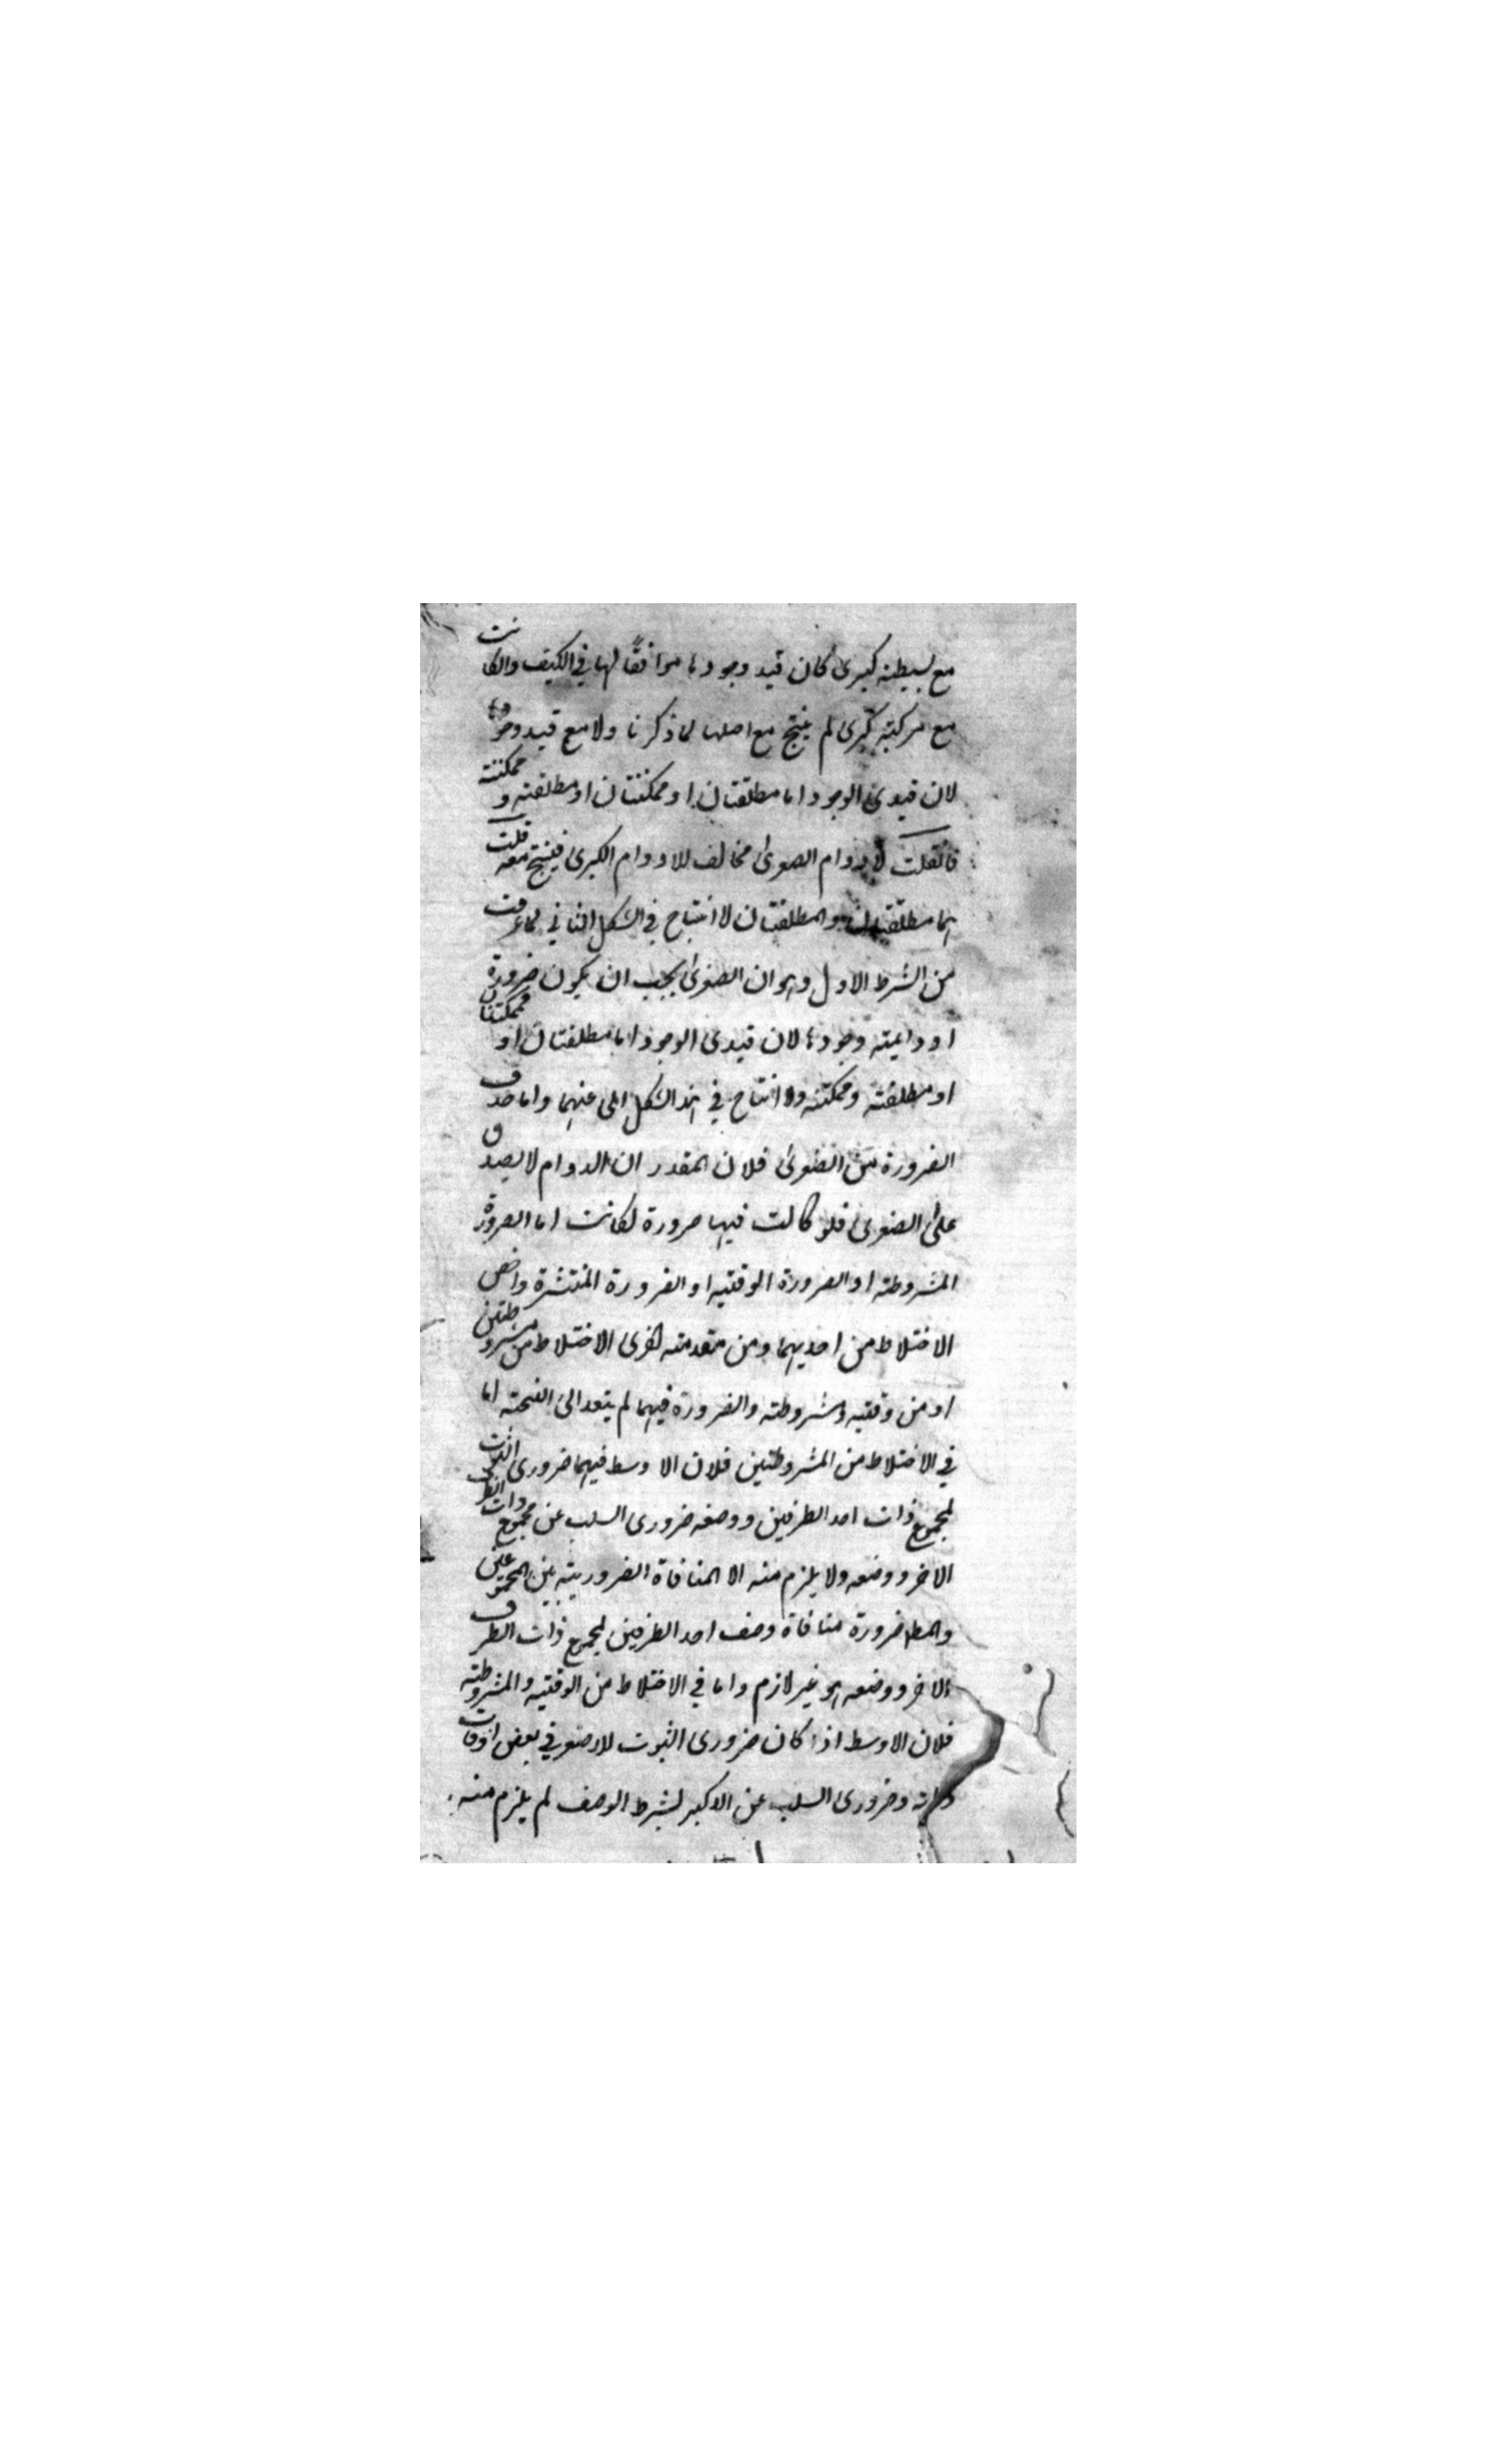 مع بسيطة كبرى كان قيد وجودها موافقًا لها في الكيف والكانت
مع مركبة كبرى لم ينتج مع اصلها لما ذكرنا ولا مع قيد وجودها
لان قيدى الوجود اما مطلقتان او ممكنتان او مطلقة وممكنة
فانقلت لا دوام الصغرى مخالف للادوام الكبرى فينتج معه قلت
هما مطلقتان والمطلقتان لا انتاج في الشكل الثاني لما عرفت
من الشرط الاول وهو ان الصغرى يجب ان يكون ضرورة
او دايمة وجودها لان قيدى الوجود اما مطلقتان او ممكنتان
او مطلقة وممكنة ولا انتاج في هذا الشكل عنهما واما حذف
الضرورة من الصغرى فلان المقدر ان الدوام لا يصدق
على الصغرى فلو كانت فيها ضرورة لكانت اما الضرورة
المشروطة او الضرورة الوقتية او الضرورة المنتشرة واخص
الاختلاط من احديهما ومن مقدمة اخرى الاختلاط من مشروطتين
او من وقتيه ومشروطة والضرورة فيهما لم يتعد الى النتيجة اما
في الاختلاط من المشروطتين فلان الاوسط فيهما ضرورى الثبوت
لمجموع ذات احد الطرفين ووصفه ضرورى السلب عن مجموع ذات الطرف
الاخر ووصفه ولا يلزم منه الا المنافاة الضرورية بين المجموعين
والمط ضرورة منافاة وصف احد الطرفين لمجموع ذات الطرف
الاخر ووصفه هو غير لازم واما في الاختلاط من الوقتيه والمشروطة
فلان الاوسط اذا كان ضرورى الثبوت للاصغر في بعض اوقات
ذاته وضرورى السلب عن الاكبر بشرط الوصف لم يلزم منه